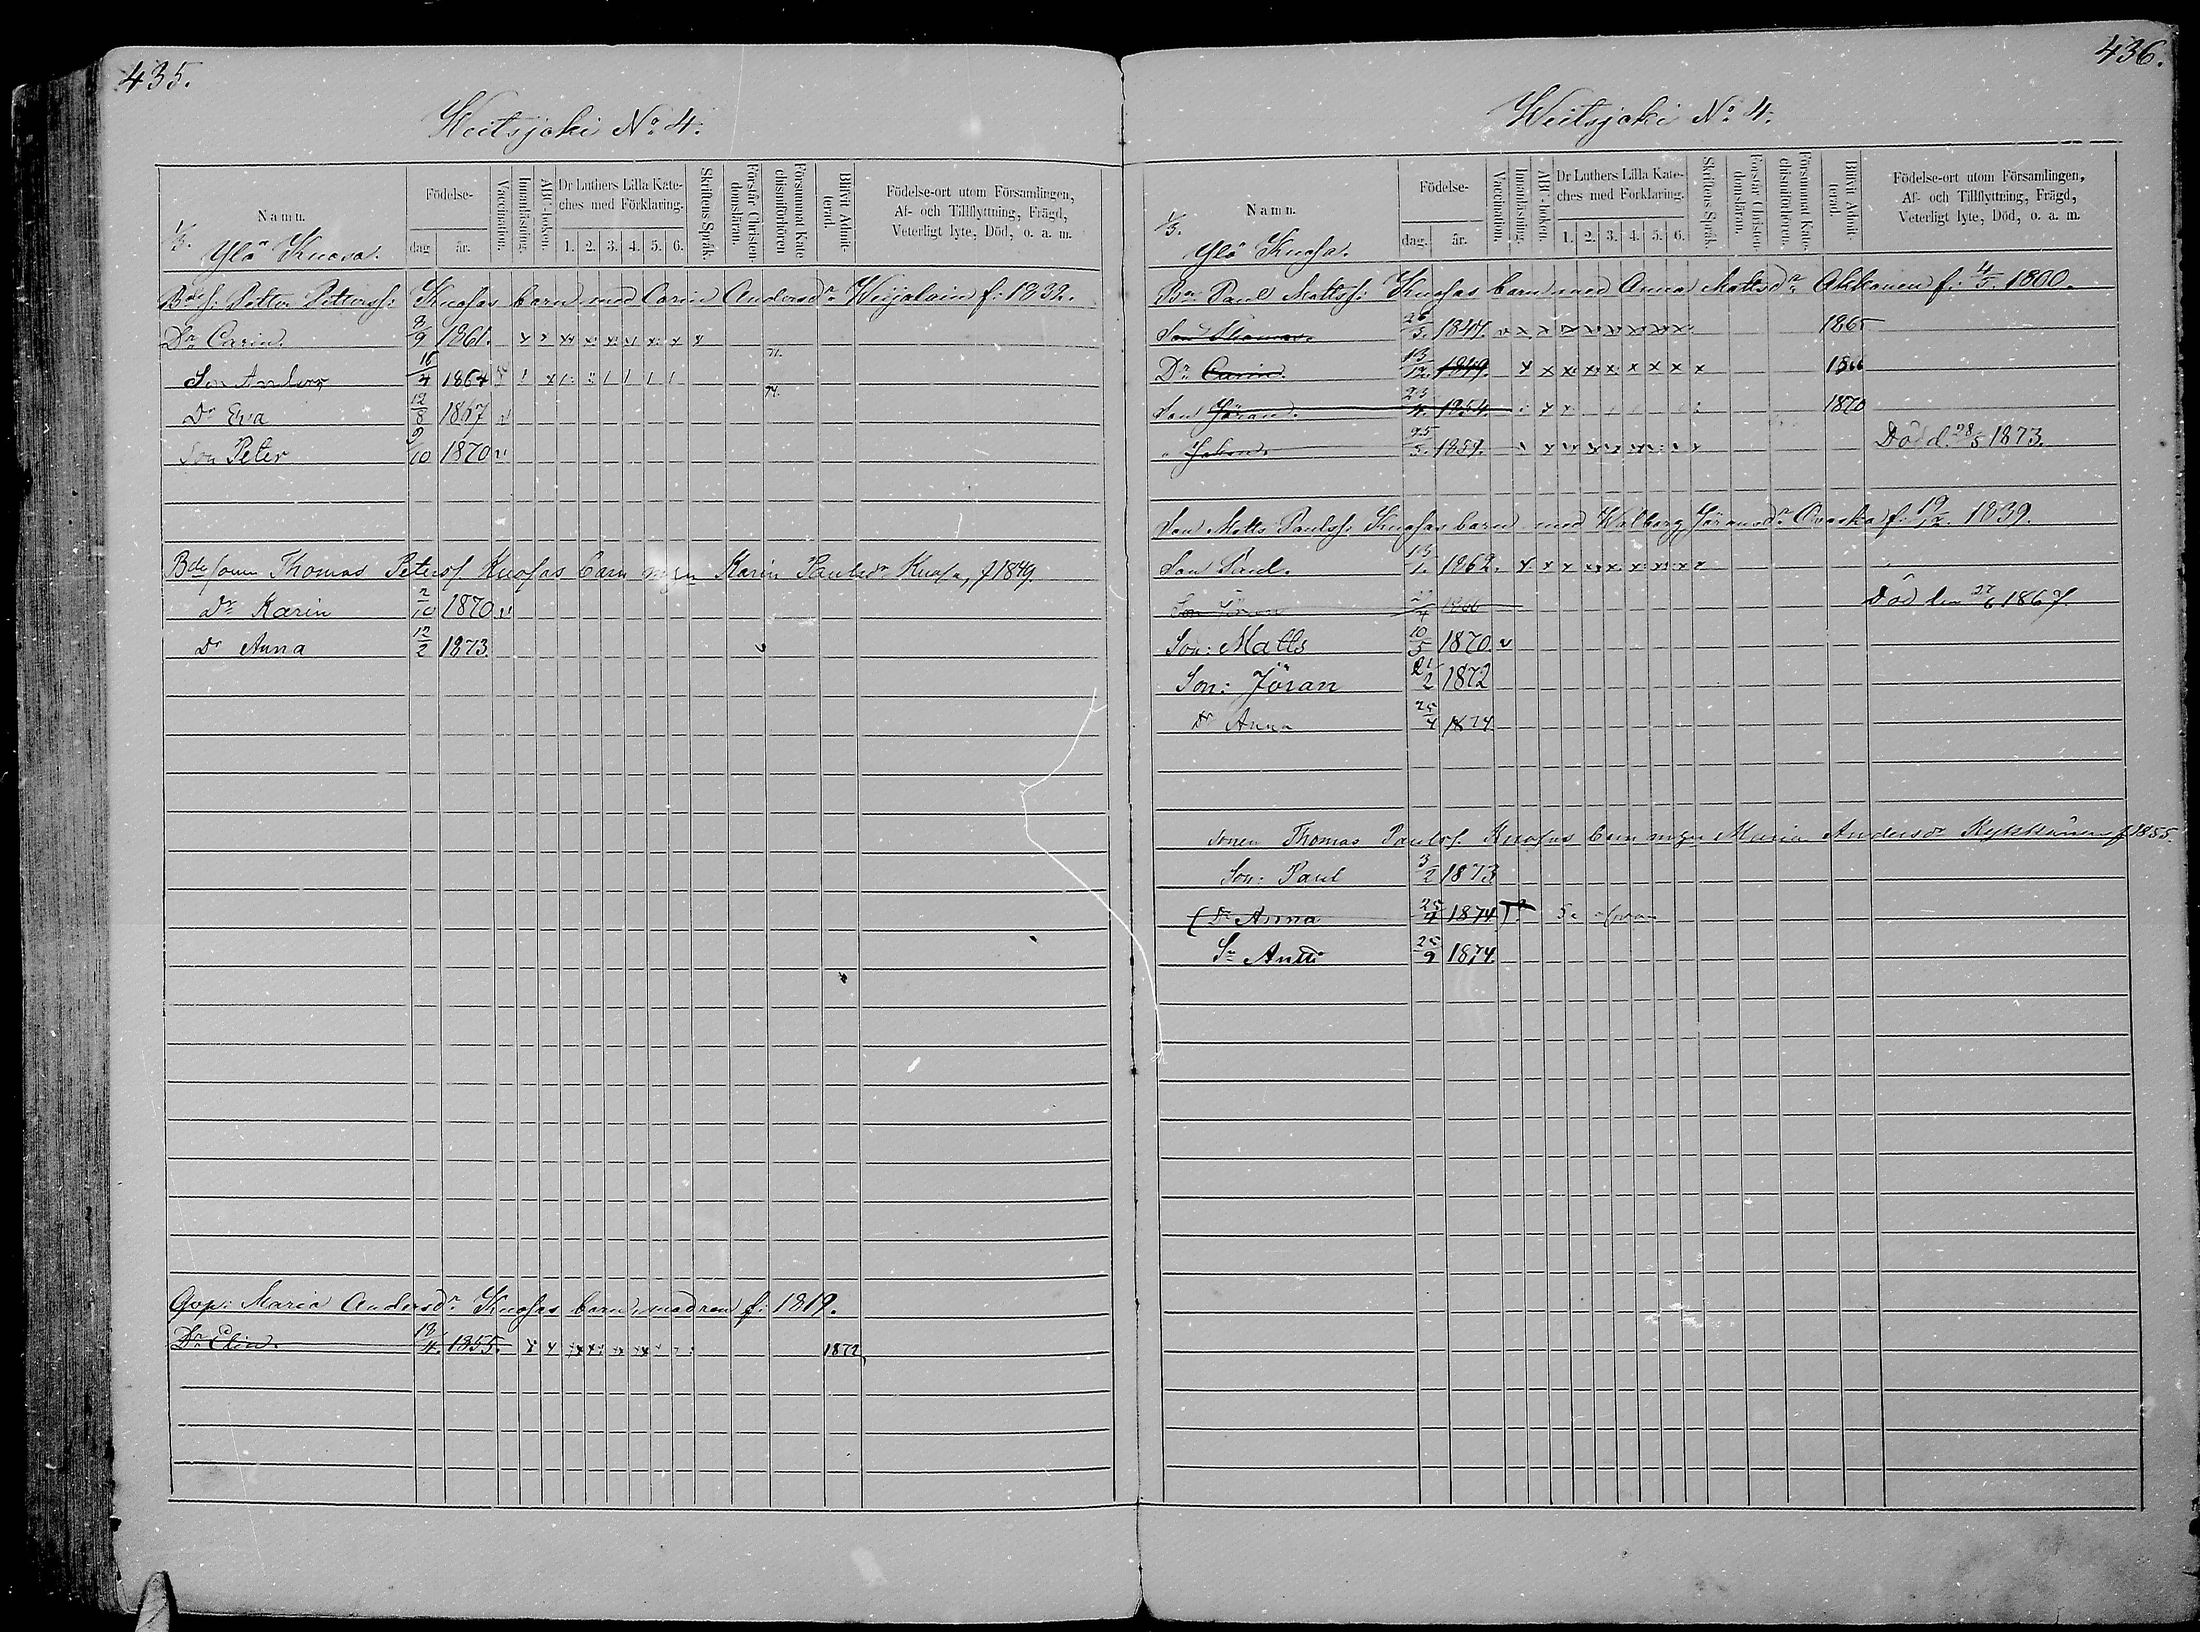 435.
Weitsjoki No 4.
Namn.
Födelse-
dag
år.
Vaccination.
Innanläsning.
ABC-boken.
Dr Luthers Lilla Kate-
ches med Förklaring.
1. 2. 3. 4. 5. 6.
Skriftens Språk.
Förstår Christen-
domsläran.
Försummat Kate
chismiförhören
Blifvit Admit-
terad.
Födelse-ort utom Församlingen,
Af- och Tillflyttning, Frägd,
Veterligt lyte, Död, o. a. m.
1/3. Ylö Knosa.
Bde f: Petter Petterss: Knosas barn med Carin Andersdr Weijalain f: 1832.
Dr Carin. 8/9 1861.
Son Anders 16/4 1864 71.
74.
Dr Eva 12/8 1867
Son Peter 9/10 1870
Bde sonen Thomas Peterss. Knosas barn m Karin Paulsdr Knosa, f 1849
Dr Karin 2/10 1870
Dr Anna 12/2 1873.
Gvp: Maria Andersdr Knosas barn, modren f: 1819.
Dr Elin. 18/4. 1855. 1872
436.
Weitsjoki No 4.
Namn.
Födelse-
dag.
år.
Vaccination.
Innanläsning.
ABC-boken.
Dr Luthers Lilla Kate-
ches med Förklaring.
1. 2. 3. 4. 5. 6.
Skriftens Språk.
Förstår Christen-
domsläran.
Försummat Kate-
chismiförhören.
Blifvit Admit-
terad.
Födelse-ort utom Församlingen,
Af- och Tillflyttning, Frägd,
Veterligt lyte, Död, o. a. m.
1/3. Ylö Knosa.
Bn Paul Mattss: Knosas barn med Anna Mattsdr Akkanen f: 4/5 1800.
Son Thomas. 26/5. 1847. 1865
Dr Carin. 13/12. 1849. 1866
Son Jöran. 23/4. 1854. 1870
" Johan. 25/5. 1859. Död d. 28/5 1873.
Son Matts Paulss: Knosas barn med Walborg Jöransdr Ovaska f: 19/12. 1839.
Son Paul. 13/1. 1862.
Son Jöran 27/4 1866 Död den 27/6 1867.
Son: Matts 10/5 1870.
Son: Jöran 21/2 1872
Dr Anna 25/4 1874
Sonen Thomas Paulss. Knosas barn m Maria Andersdr f 1855.
Son: Paul 3/2 1873
(Dr Anna 25/4 1874
Sn Antti 25/9 1874.